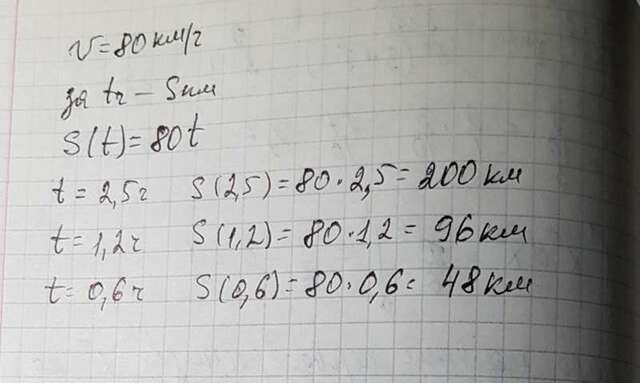 V=80 км/ч
за tч – Sкм
S(t)=80t
t = 2,5ч S(2,5)=80·2,5= 200 км
t = 1,2ч S(1,2)=80·1,2 = 96 км
t= 0,6ч S(0,6)=80·0,6= 48 км